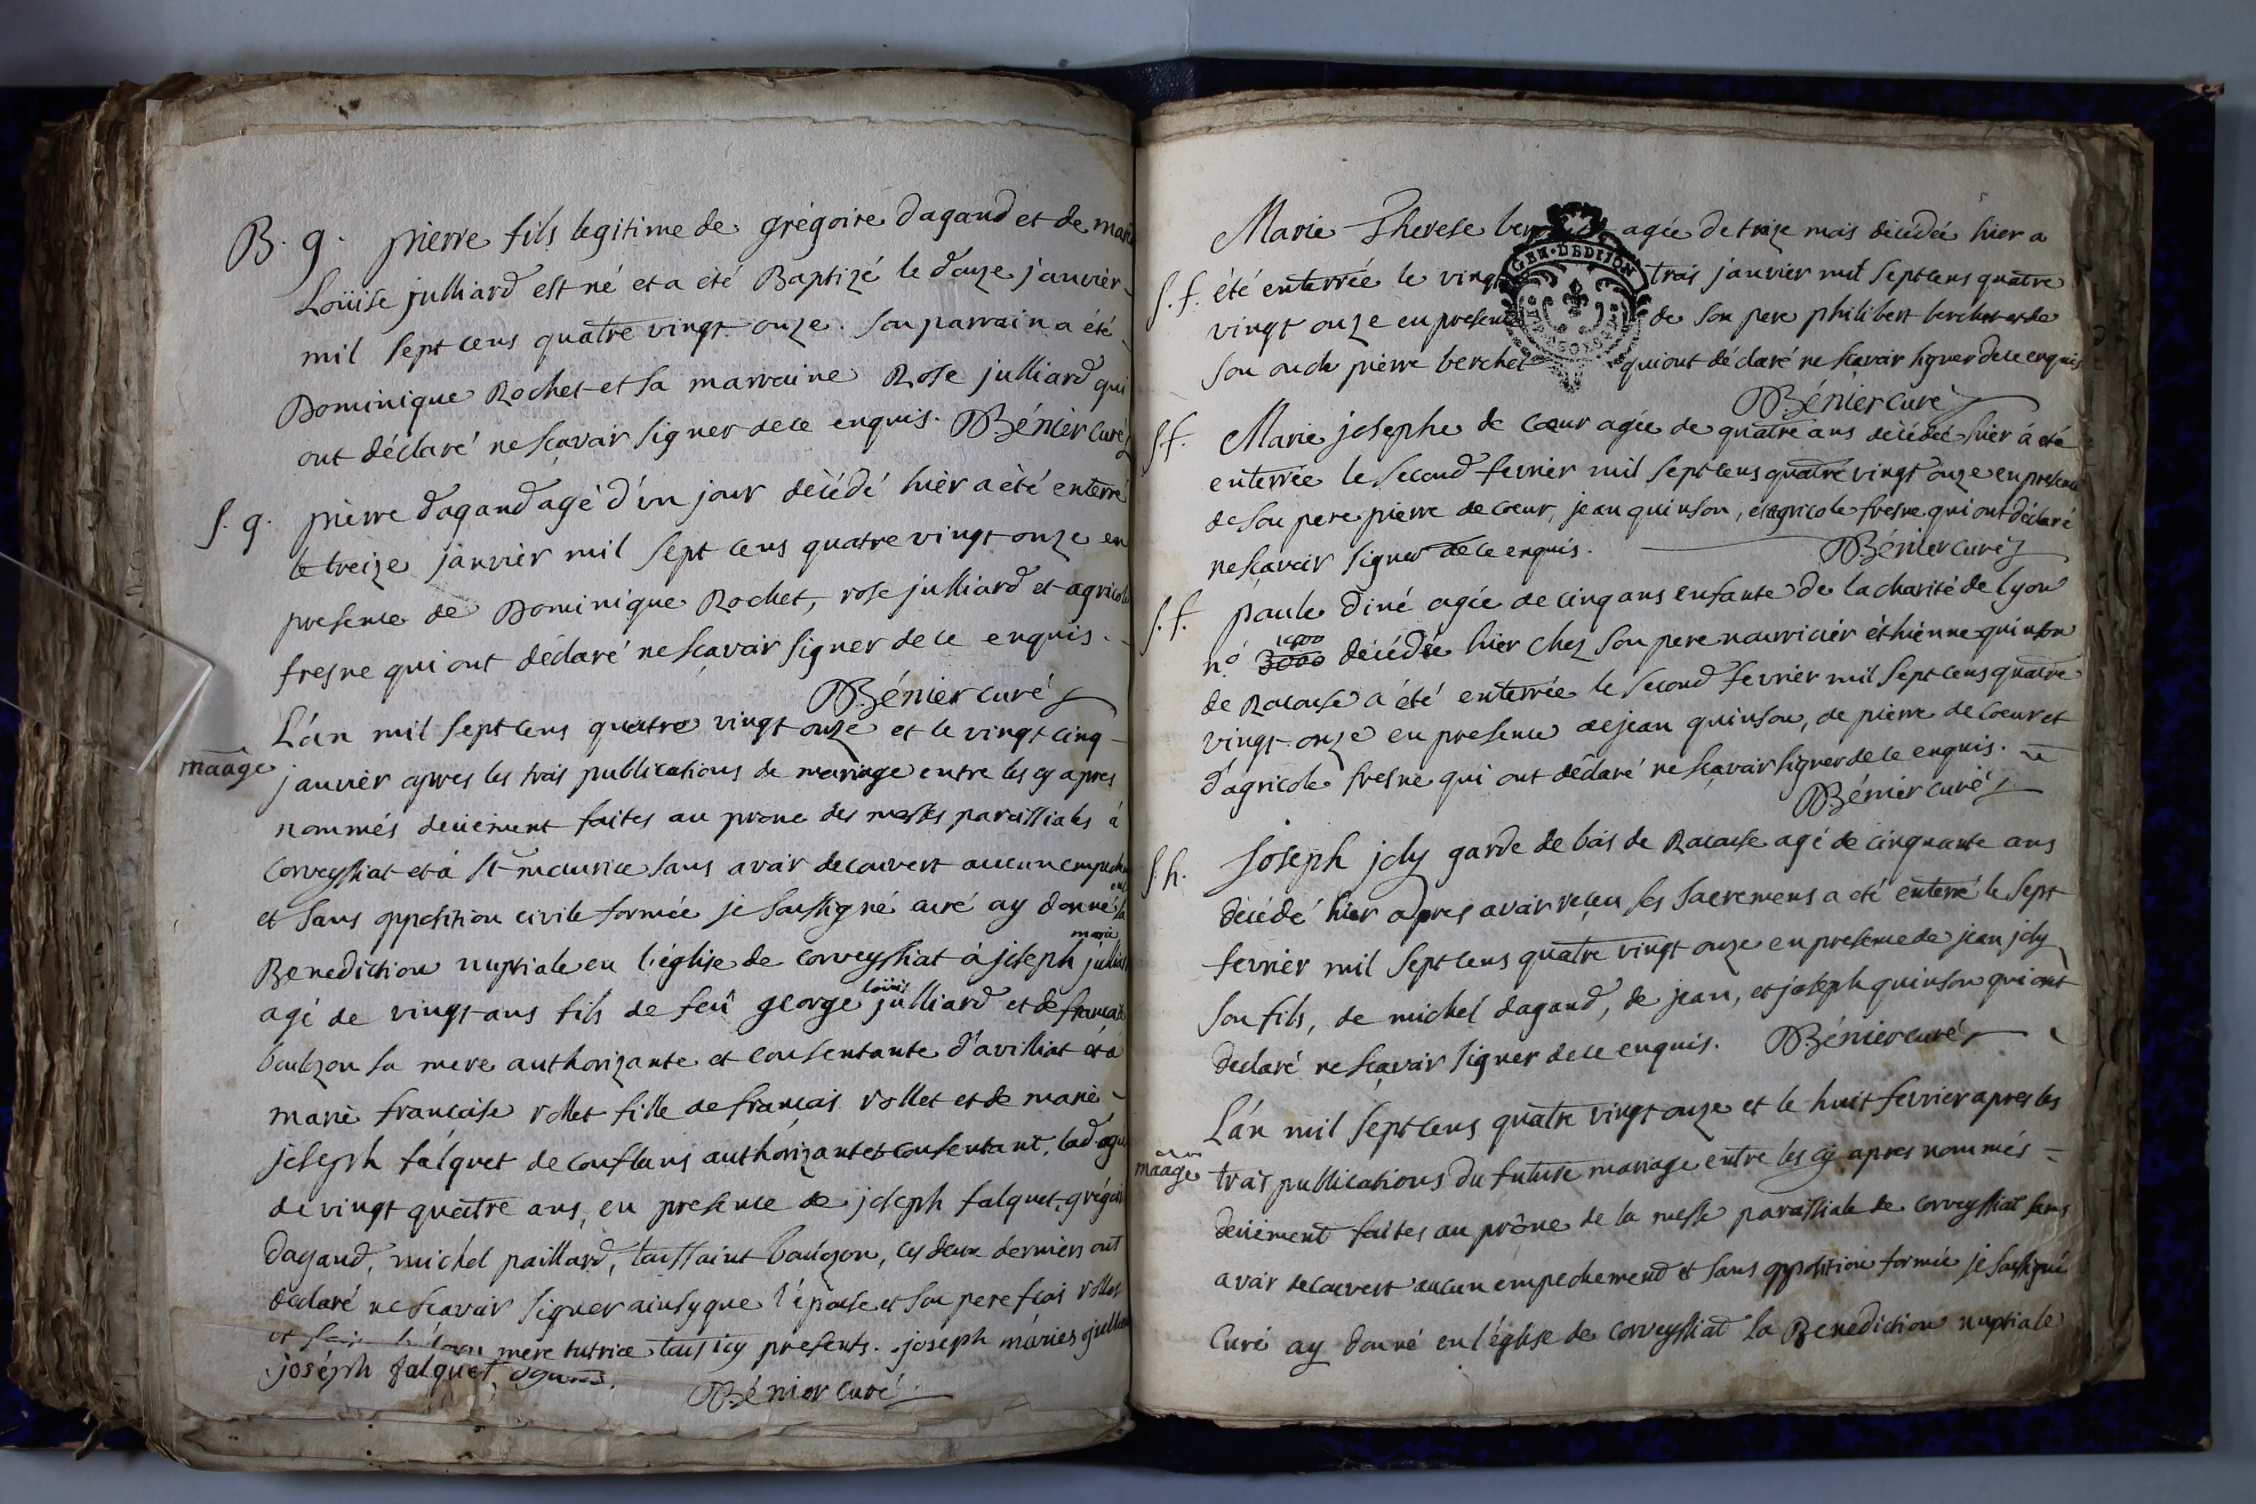 B. g. pierre fils legitime de grégoire dagand et de marie
Loüise julliard est né et a été Baptizé le douze janvier
mil sept cens quatre vingt onze. son parrain a été
Dominique Rochet et sa marraine Rose julliard qui
ont déclaré ne sçavoir signer de ce enquis. Bénier curé
S. g. pierre dagand agé d'un jour décédé hier a été enterré
le treize janvier mil sept cens quatre vingt onze en
presence de Dominique Rochet, rose julliard et agricole
fresne qui ont déclaré ne sçavoir signer de ce enquis.
Bénier curé
L'an mil sept cens quatre vingt onze et le vingt cinq
maage janvier apres les trois publications de mariage entre les cy apres
nommés deüement faites au prone des messes paroissiales à
Corveyssiat et à St maurice sans avoir decouvert aucun empechem
ent
et sans opposition civile formée je soussigné curé ay donné la
marie
Benediction nuptiale en l'église de corveyssiat à joseph julliard
agé de vingt ans fils de feû george loüis julliard et de françoise
boulzon sa mere authorizante et consentante d'avissiat et a
marie francoise rollet fille de francois rollet et de marie
joseph falquet de conflans authorizant et consentant, lad. agée
de vingt quatre ans, en presence de joseph falquet, grégoire
dagand, michel paillard, toussaint bouzon, ces deux derniers ont
declaré ne scavoir signer ainsy que l'épouse et son pere fcois rollet
mere tutrice tous icy presents. joseph maries julliard
joséph falquet,
Bénier curé
Marie Therese agée de treize mois décédée hier a
S. f. été enterrée le vingt trois janvier mil sept cens quatre
vingt onze en presence de son pere philibert berchet et de
son oncle pierre berchet qui ont déclaré ne scavoir signer de ce enquis
GEN. DE DIJON
Bénier curé
S. f. Marie josephe de coeur agée de quatre ans décédée hier à été
enterrée le second fevrier mil sept cens quatre vingt onze en presence
de son pere pierre de coeur, jean quinson, et agricole fresne qui ont déclaré
ne sçavoir signer de ce enquis. Bénier curé
S. f. paule diné agée de cinq ans enfante de la charité de lyon
n° 3000 décédée hier chez son pere nourricier éthienne quinson
de Racouse a été enterrée le second fevrier mil sept cens quatre
vingt onze en presence de jean quinson, de pierre de coeur et
d'agricole fresne qui ont déclaré ne sçavoir signer de ce enquis.
Bénier curé
S. h. Joseph joly garde de bois de Racouse agé de cinquante ans
décédé hier apres avoir reçeu ses sacremens a été enterré le sept
fevrier mil sept cens quatre vingt onze en presence de jean joly
son fils, de michel dagand, de jean, et joseph quinson qui ont
declaré ne sçavoir signer de ce enquis. Bénier curé
L'an mil sept cens quatre vingt onze et le huit fevrier apres les
maage trois publications du future mariage entre les cy apres nommés
deüement faites au prône de la messe paroissiale de corveyssiat sans
avoir decouvert aucun empechement et sans opposition formée je soussigné
Curé ay donné en l'église de corveyssiat la Benediction nuptiale